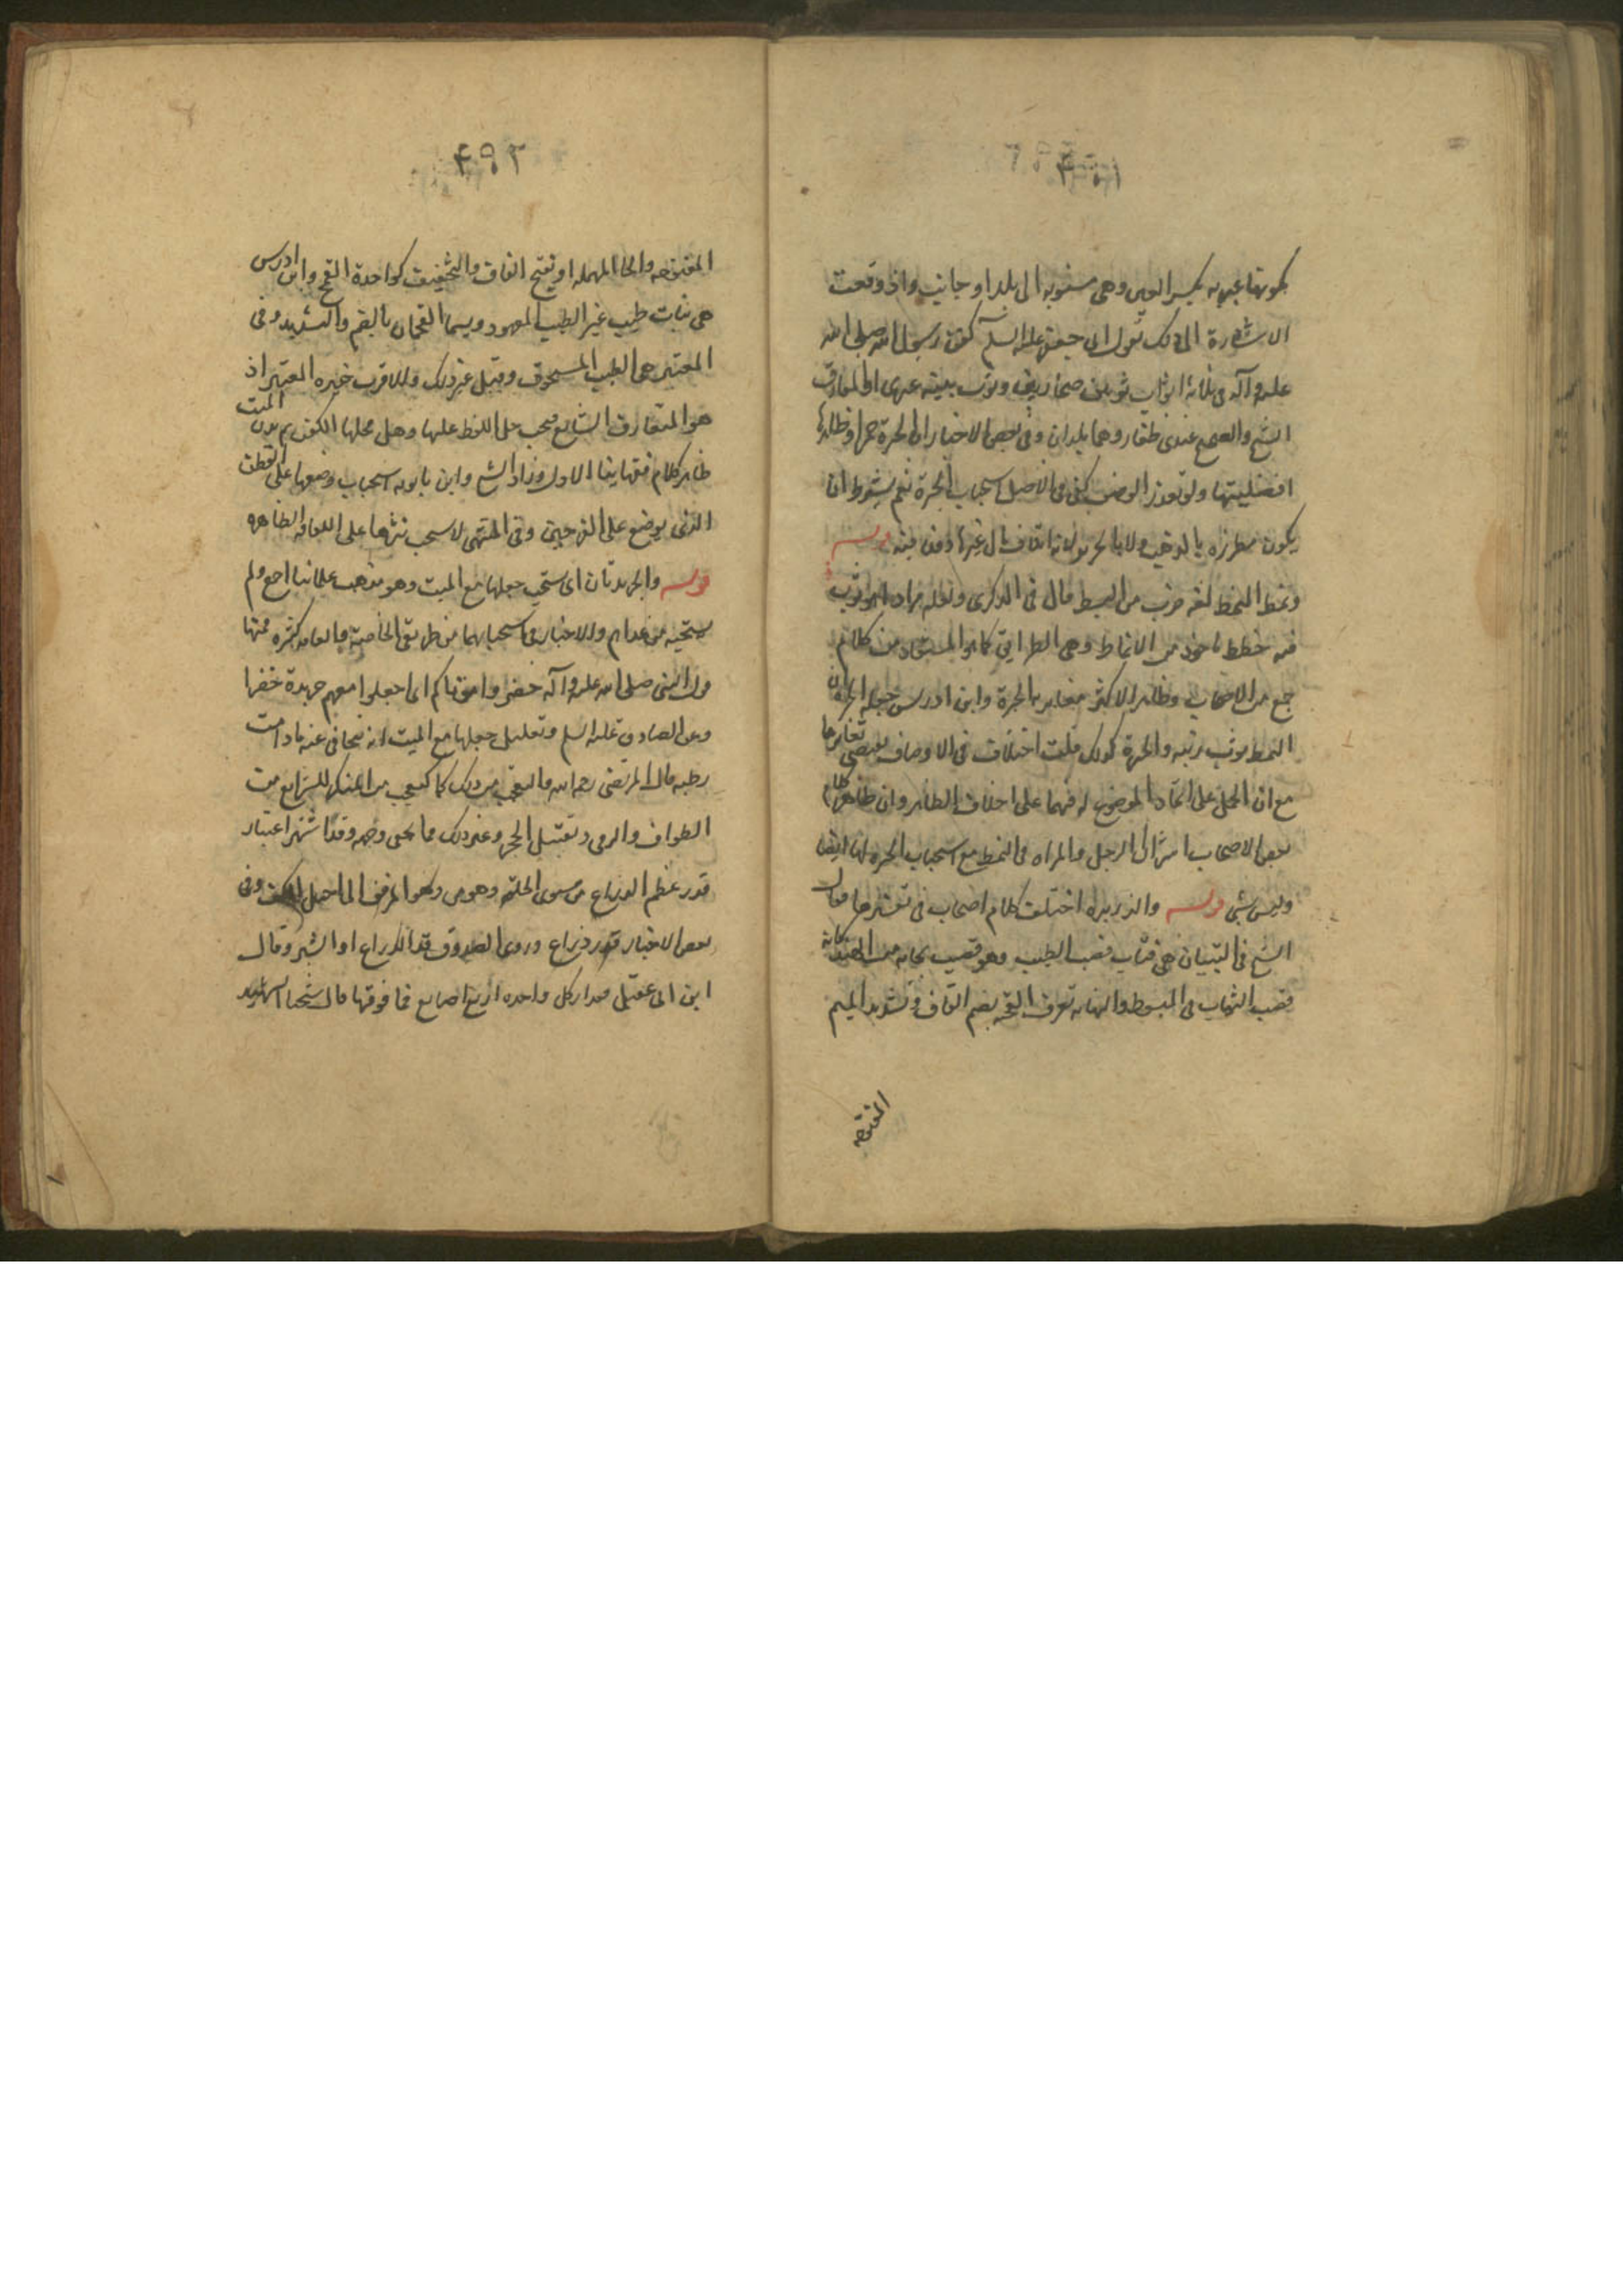 بكونها عبريه بكسر العين وهى منسوبه الى بلد او جانب واد ووقعت
الاشارة الى ذلك بقول ابى جعفر عليه السلم كفن رسول الله صلى الله
عليه وآله فى ثلاثة اثواب ثوبين صحاريين وثوب يمنيه عبرى او اظفار
الشيخ والصحيح عندى ظفار وهما بلدان وفى بعض الاخبار ان الحبرة حمرا وظاهرها
افضليتها ولو تعذر الوصف كفى فى الاصل استحباب الحبرة نعم يشترط ان
يكون مطرزه بالذهب ولا بالحرير لانه اتلاف مال غير ماذون فيه قوله
ونمط النمط لغة ضرب من البسط قال فى الذكرى ولعله مراد او هو ثوب
فيه خطط ماخوذ من الانماط وهى الطرايق كما هو المستفاد من كلام
جمع من الاصحاب وظاهر الاكثر مغايرته الحبرة وابن ادريس جعله الحبرة لان
النمط ثوب زينه والحبرة كذلك قلت اختلاف فى الاوصاف يقتضى تغايرها
مع ان الحمل على اتحاد الموضوع له فيهما على خلاف الظاهر وان ظاهر كلام
بعض الاصحاب اشتراك الرجل والمراه فى النمط مع استحباب الحبره لها ايضا
وليس بشى قوله والذريره اختلف كلام اصحاب فى تفسيرها فقال
الشيخ فى التبيان هى فتات قصب الطيب وهو قصب يجاء به من الهند كانه
قصب النشاب فى المبسوط والنهايه تعرف بالقمحه بضم القاف وتشديد الميم
المفتوحه
٤٩٢
المفتوحه والحا المهمله او بفتح القاف والتخفيف كواحدة القمح وابن ادريس
هى نبات طيب غير الطيب المعهود ويسما القمحان بالضم والتشديد وفى
المعتبر هى الطيب المسحوق وقيل غير ذلك وللاقرب خيره المعتبر اذ
هو المتعارف الشايع فيجب حمل اللفظ عليها وهل محلها الكفن ام بدن الميت
ظاهر كلام فقهاينا الاول وزاد الشيخ وابن بابويه استحباب وضعها على القطن
الذى يوضع على الفرجين وفى المنتهى لا يستحب نثرها على اللفافه الظاهره
قوله والجريدتان اى يستحب جعلها مع الميت وهو مذهب علمائنا اجمع ولم
يستحبه من عداهم والاخبار فى استحبابهما من طريقى الخاصه والعامه كثيره فمنها
قول النبى صلى الله عليه وآله خضروا موتاكم اى اجعلوا معهم جريدة خضرا
وعن الصادق عليه السلم وتعليل جعلها مع الميت انه يتجافى عنه مادامت
رطبه قال المرتضى رحمه الله والتعجب من ذلك كالتعجب من المنكر للشرايع من
الطواف والرمى وتقبيل الحجر وغير ذلك مما يخفى وجهه وقد اشتهر اعتبار
قدر عظم الذراع
بعض الاخبار قدر ذراع وروى الصدوق قدر الذراع او الشبر وقال
ابن ابى عقيل مقدار كل واحده اربع اصابع فما فوقها قال شيخنا الشهيد